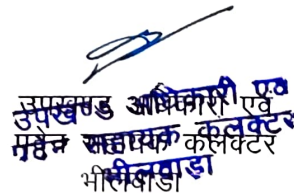 उपखण्ड अधिकारी एवं
पदेन सहायक कलेक्टर
भीलवाड़ा
उपखण्ड अधिकारी एवं
पदेन सहायक कलेक्टर
भीलवाड़ा